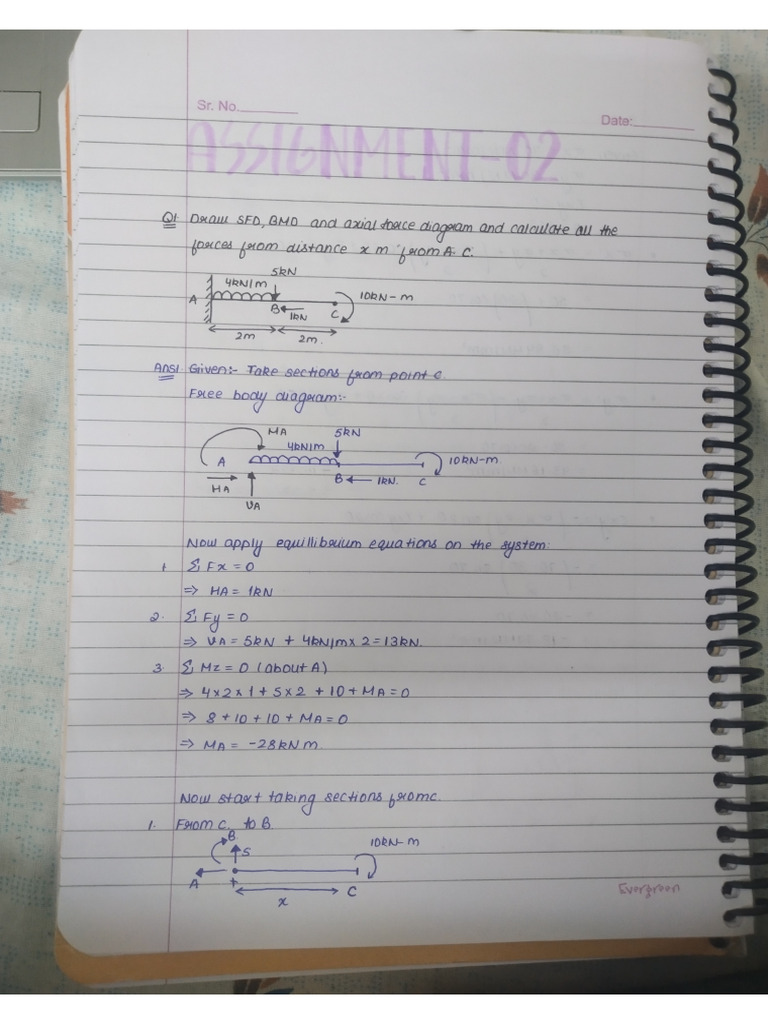 Sr. No.
Date:
ASSIGNMENT-02
Q1. Draw SFD, BMD and axial force diagram and calculate all the
forces from distance x m from A. C.
5kN
4kN/m
10kN-m
A
B
1kN
C
2m
2m.
Ans1. Given:- Take sections from point c.
Free body diagram:-
MA
5kN
4kN/m
10kN-m.
A
B
1kN.
C
HA
VA
Now apply equillibrium equations on the system:
1. Σ Fx = 0
⇒ HA = 1kN
2. Σ Fy = 0
⇒ VA = 5kN + 4kN/m x 2 = 13kN.
3. Σ Mz = 0 (about A)
⇒ 4x2x1 + 5x2 + 10 + MA = 0
⇒ 8 + 10 + 10 + MA = 0
⇒ MA = -28kNm.
Now start taking sections from c.
1. From C. to B.
B
S
10kN-m
A
x
C
Evergreen